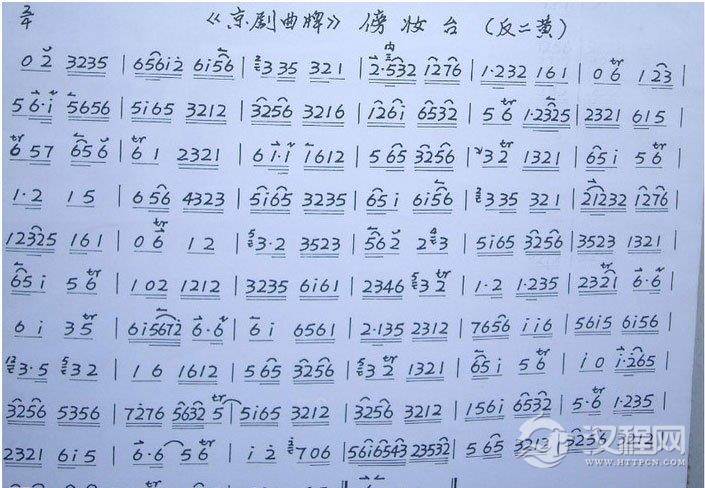 2/4 《京剧曲牌》 傍妆台 (反二黄)
0 2 3235 | 656i2 6i56 | 3 35 321 | 2·532 1276 | 1·232 161 | 0 6 123 |
5 6·i 5656 | 5i65 3212 | 3256 3216 | 126i 6532 | 5 6 1·2325 | 2321 615 |
6 57 656 | 6 1 2321 | 6 i·i 1612 | 5 65 3256 | 3 2 1321 | 65i 56 |
1·2 1 5 | 6 56 4323 | 5i65 3235 | 65i 6i56 | 3 35 321 | 21232 1276 |
12325 161 | 0 6 1 2 | 3·2 3523 | 562 2 3 | 5i65 3256 | 3523 1321 |
65i 56 | 102 1212 | 3235 6i61 | 2346 32 | 1·2 1·235 | 2321 6·6 |
6 i 35 | 6i567i 6·6 | 6i 6561 | 2·135 2312 | 7656 ii6 | 56i5 6i56 |
3·5 32 | 16 1612 | 565 3256 | 32 1321 | 65i 56 | i0 i·265 |
3256 5356 | 7276 5632 5 | 5i65 3212 | 3256 3212 | 156i 6532 | 5·6 1·235 |
2321 6i5 | 6·6 56 | i2 706 | 56i6543 23532 | 565 3213 | 3256 3212 |
汉程网
WWW.HTTPCN.COM